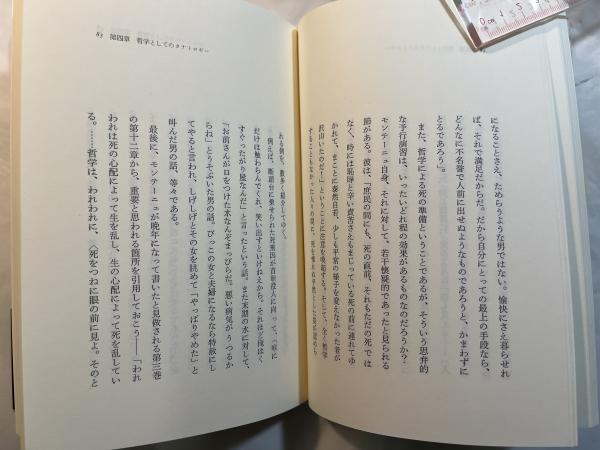 になることさえ、ためらうような男ではない。愉快にさえ暮らせれ
ば、それで満足だからだ。だから自分にとっての最上の手段なら、
どんなに不名誉で人前に出せぬようなものであろうと、かまわずに
とるであろう」。
また、哲学による死の準備ということであるが、そういう思弁的
な予行演習は、いったいどれ程の効果があるものなのだろうか?
モンテーニュ自身、それに対して、若干懐疑的であったと見られる
節がある。彼は、「庶民の間にも、死の直前、それもただの死では
なく、時には恥辱と辛い責苦さえもまじっている死の前に連れてゆ
かれて、まことに泰然自若、少しも平常の様子を変えなかった者が
沢山いたのだ!」ということに注意を喚起する。そして、全く哲学
することもなかった人々の間に、死を
83 第四章 哲学としてのタナトロギー
ある例を、数多く紹介してゆく。
例えば、断頭台に乗せられた死刑囚が首斬役人に向って、「喉に
だけは触わらんでくれ、笑い出すといけねえから、それほど俺はく
すぐったがり屋なんだ」と言ったという話、また末期の水に対して、
「お前さんが口をつけた水なんぞまっぴらだ。悪い病気がうつるか
らね」とうそぶいた男の話、びっこの女と夫婦になるなら特赦にし
てやると言われ、しげしげとその女を眺めて「やっぱりやめた」と
叫んだ男の話、等々である。
最後に、モンテーニュが晩年になって書いたと見做される第三巻
の第十二章から、重要と思われる箇所を引用しておこう——「われ
われは死の心配によって生を乱し、生の心配によって死を乱してい
る。……哲学は、われわれに、〈死をつねに眼の前に見よ。そのと